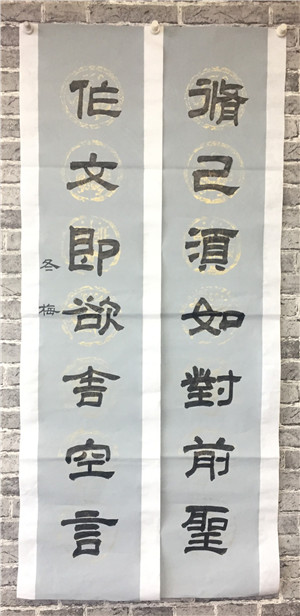 脩己須如對前聖
作文即欲舍空言
冬梅